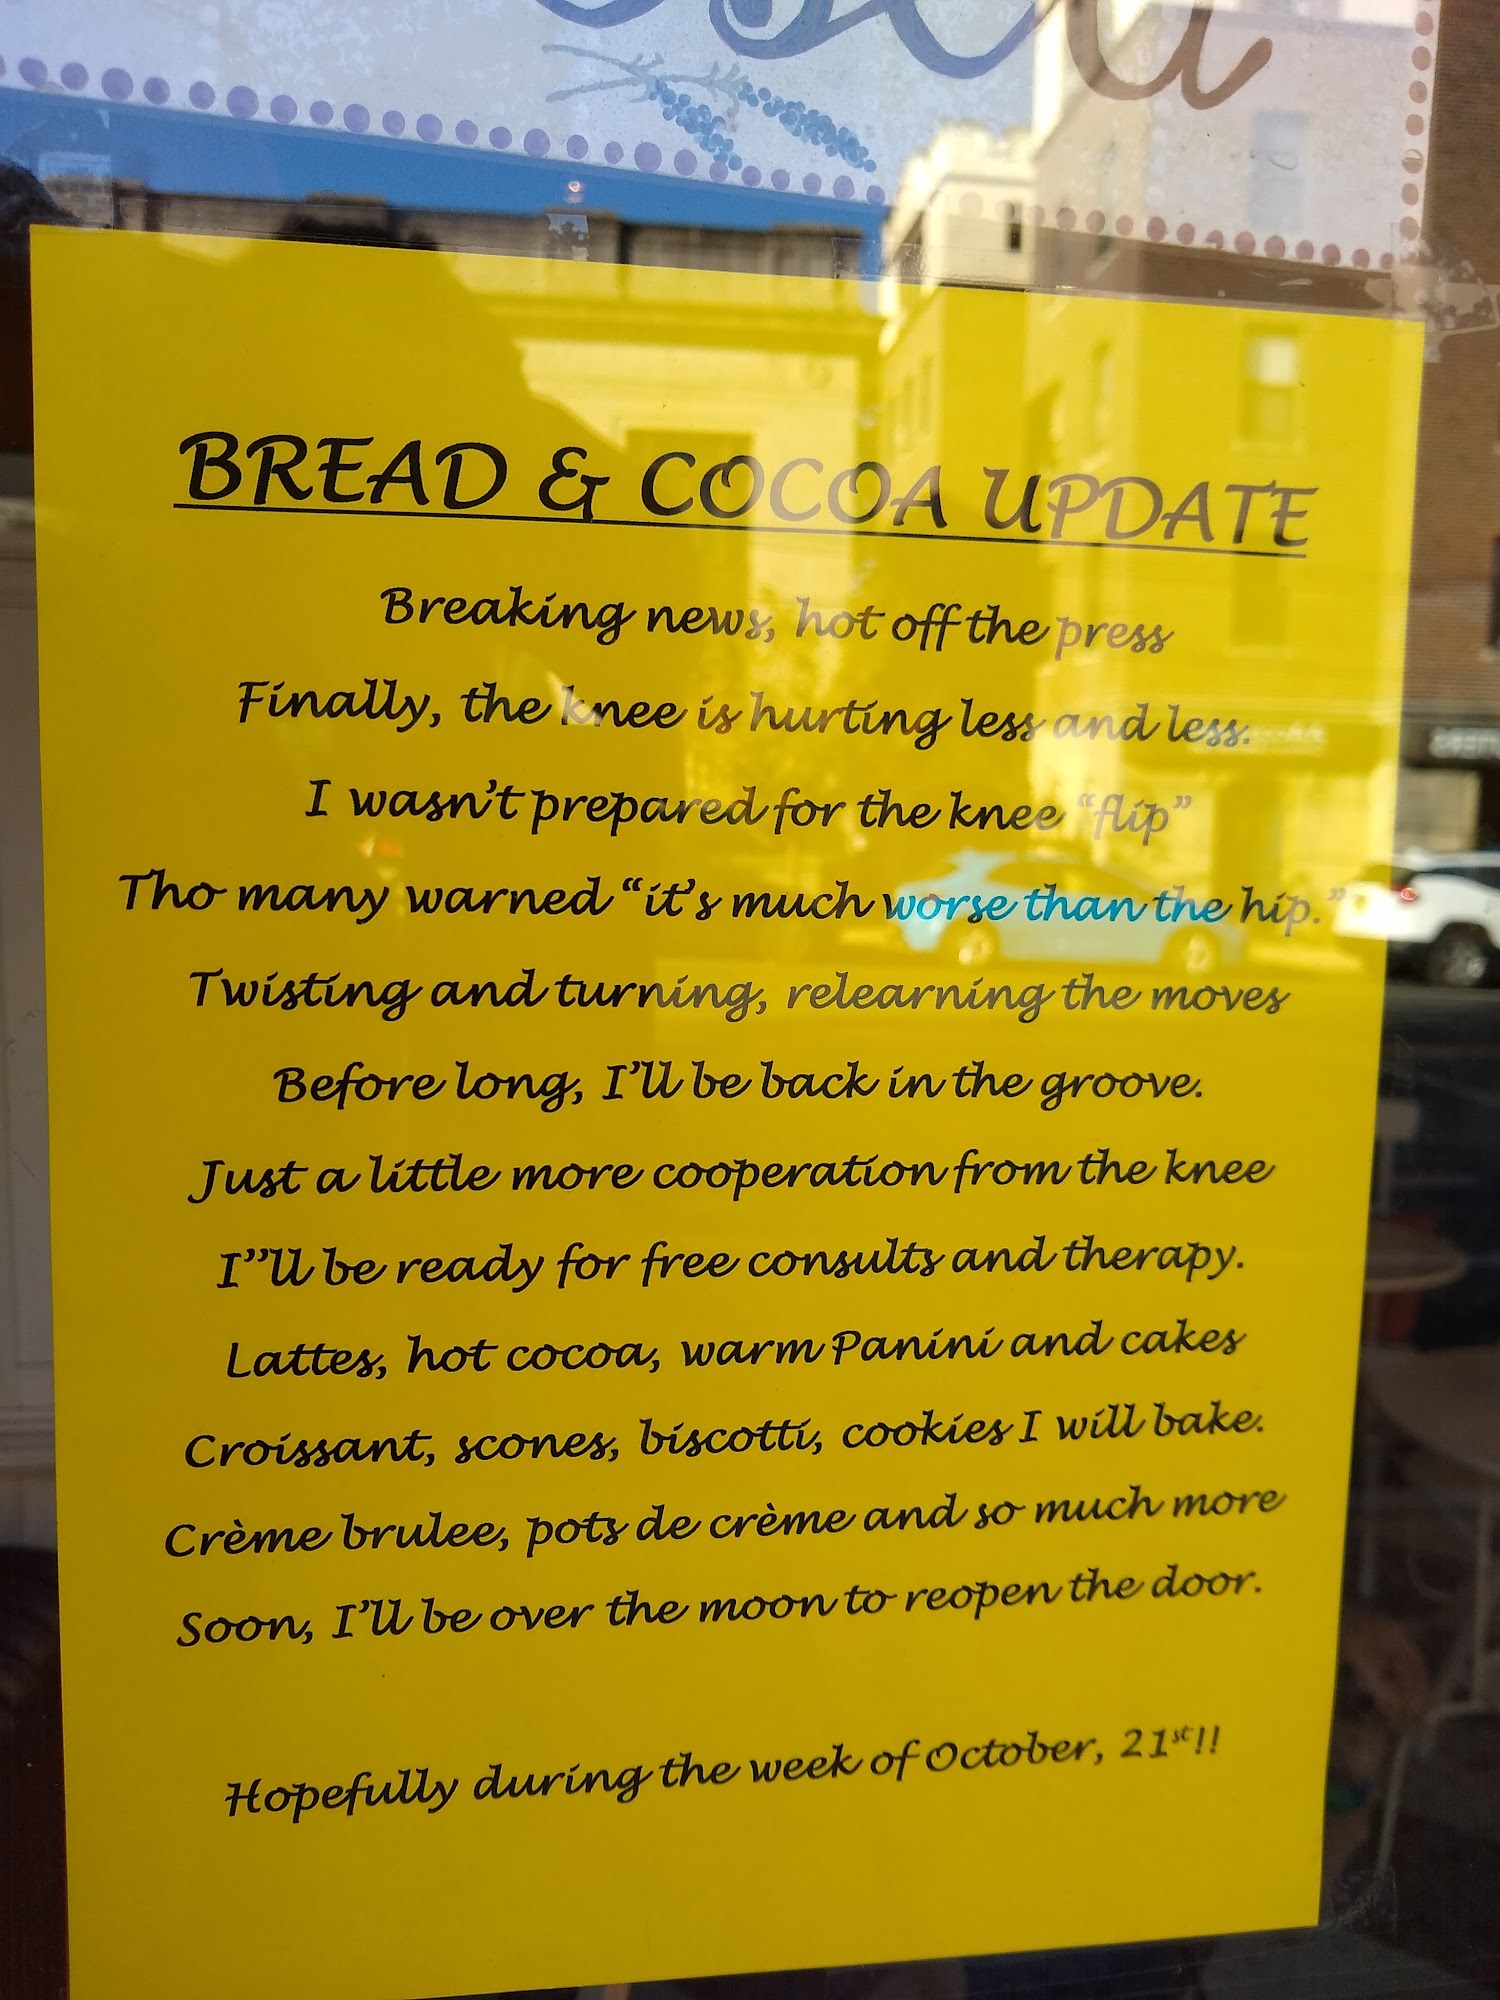 BREAD & COCOA UPDATE
Breaking news, hot off the press
Finally, the knee is hurting less and less.
I wasn't prepared for the knee “flip”
Tho many warned “it's much worse than the hip.”
Twisting and turning, relearning the moves
Before long, I'll be back in the groove.
Just a little more cooperation from the knee
I''ll be ready for free consults and therapy.
Lattes, hot cocoa, warm Panini and cakes
Croissant, scones, biscotti, cookies I will bake.
Crème brulee, pots de crème and so much more
Soon, I'll be over the moon to reopen the door.
Hopefully during the week of October, 21st!!